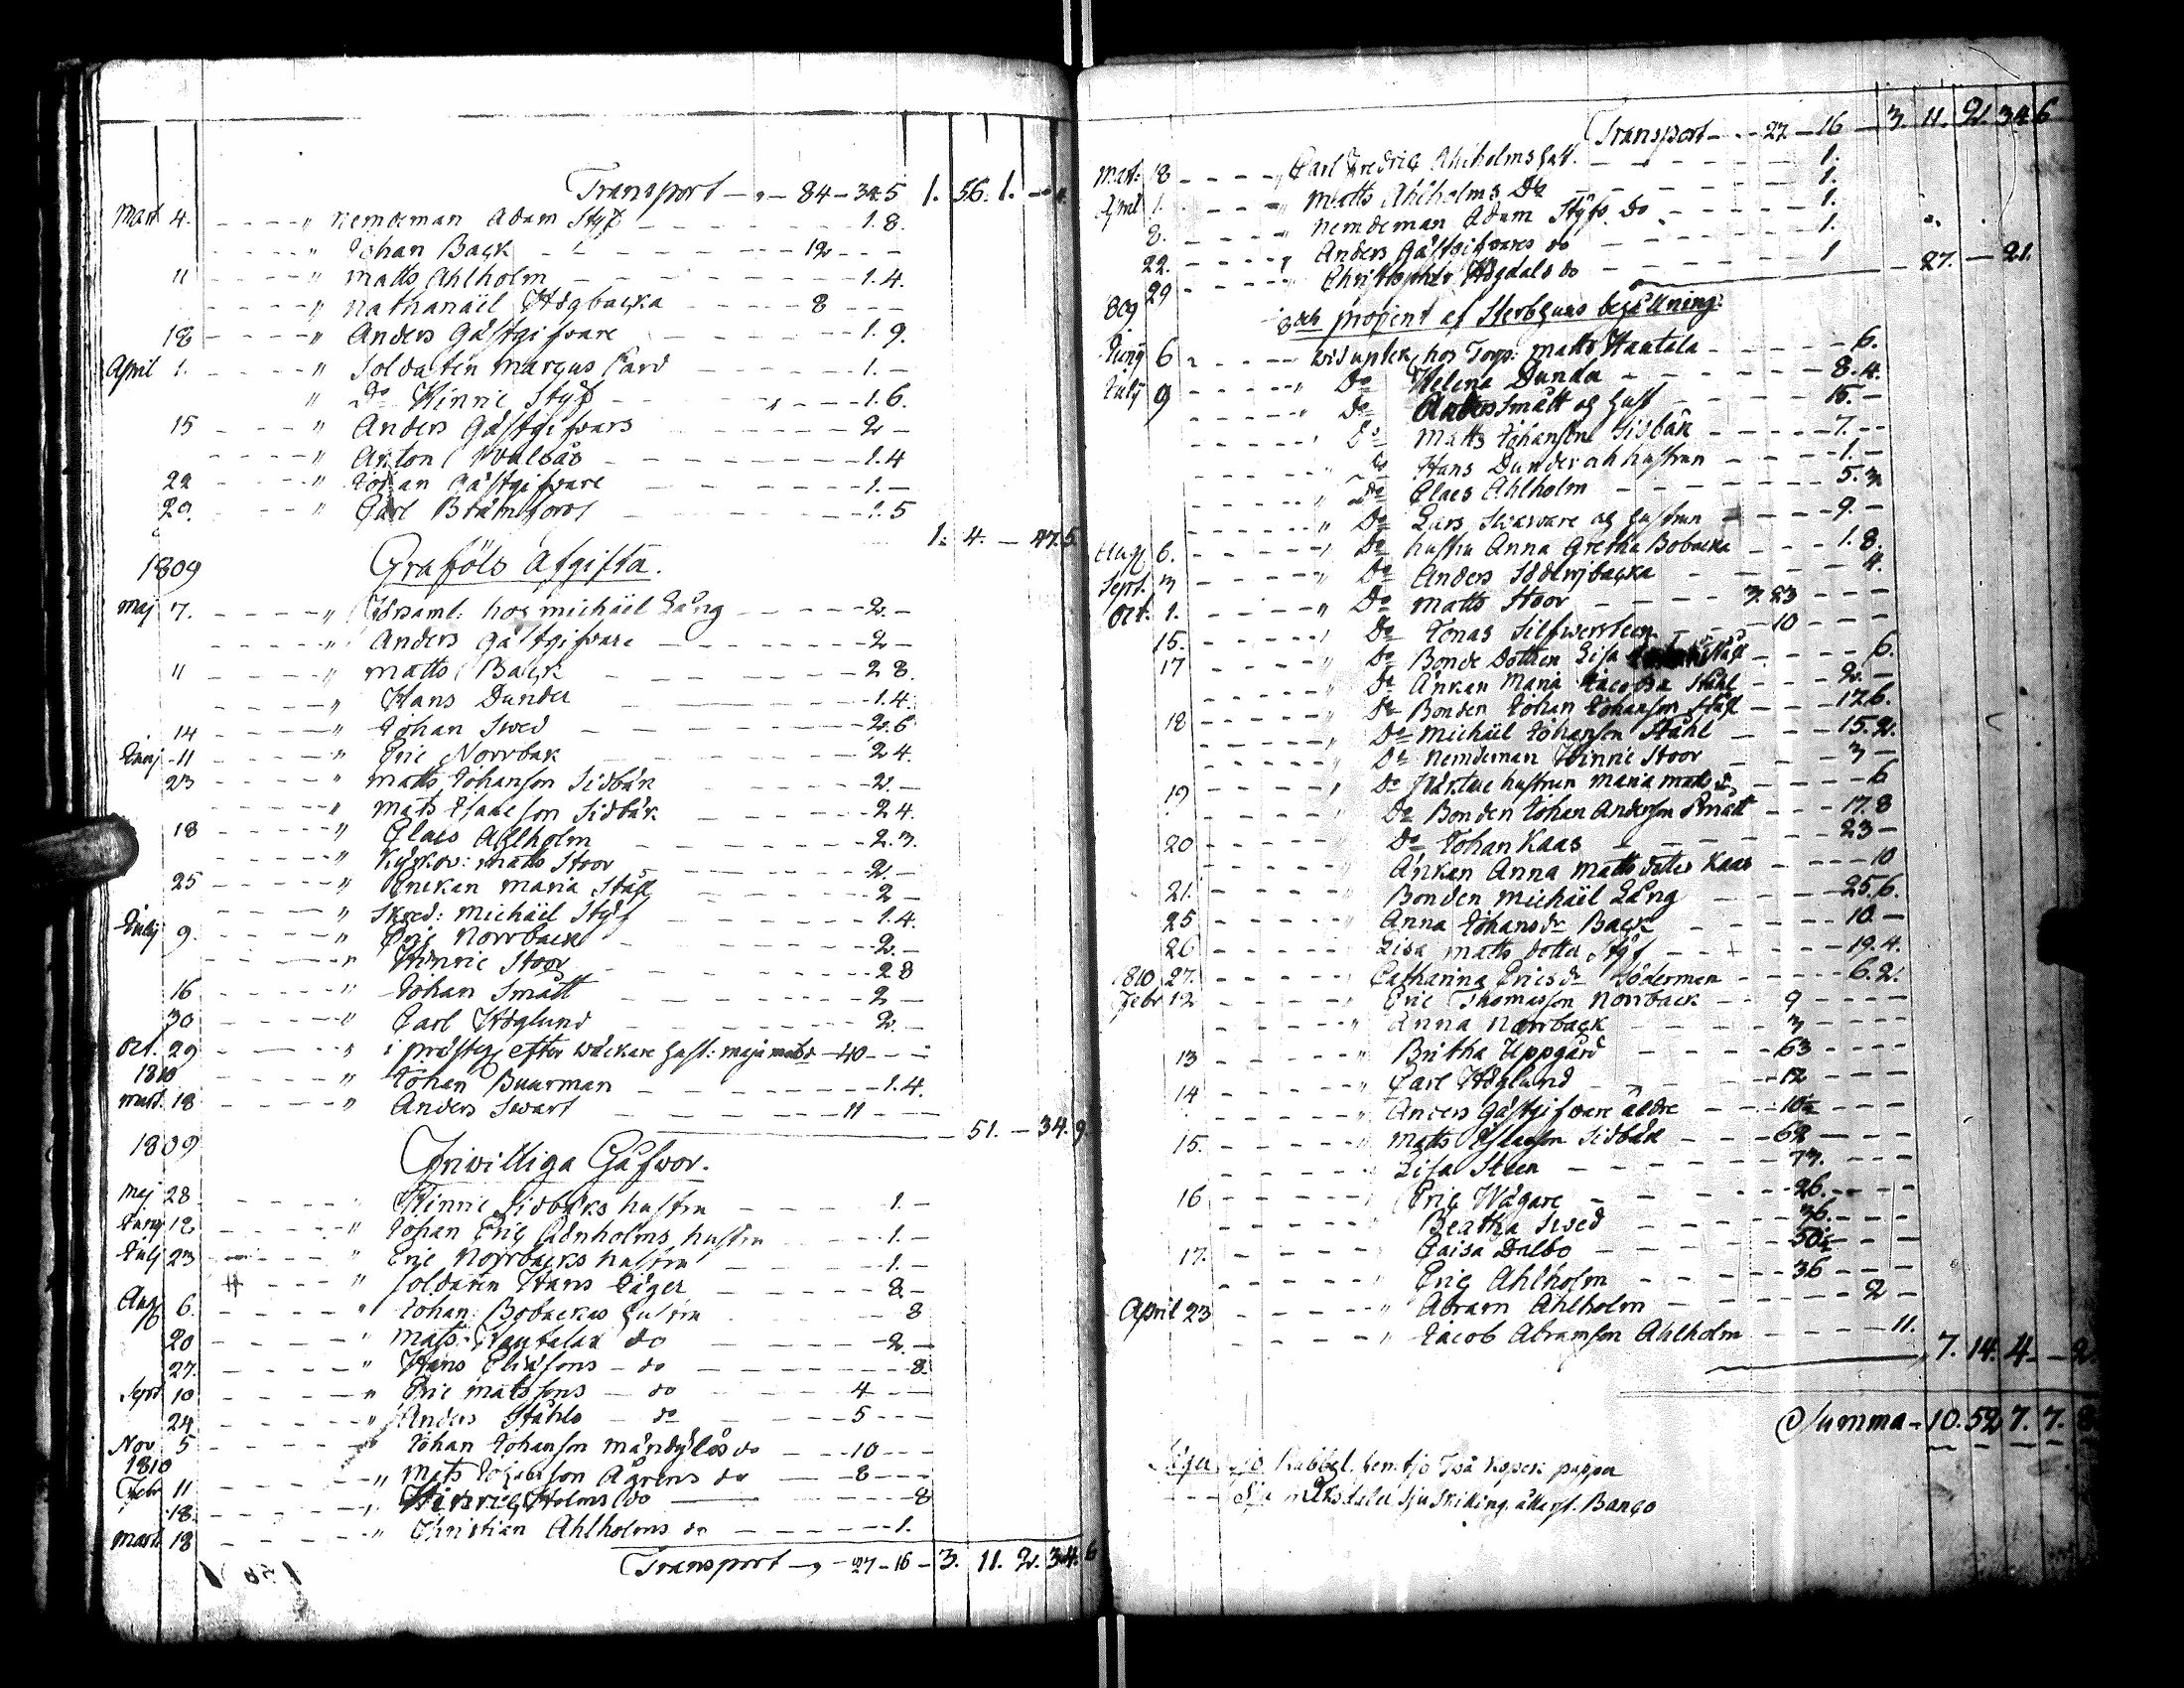 Transport — " — 84 — 34.5 1. 56. 1. —
Mart. 4. - - - " Nemdeman Adam Styf - - - 1. 8.
- - - " Johan Back - - - 12 - - -
11 - - - " Matts Ahlholm - - - 1. 4.
- - - " Nathanäel Högbacka - - - 8 - - -
18 - - - " Anders Gästgifvare - - - 1. 9.
April 1. - - - " Soldaten Marcus Card - - - 1. —
" Do Hinric Styf - - - 1. 6.
15 - - - " Anders Gästgifvars - - - 2 —
- - - " Anton - - - 1. 4
22 - - - " Johan Gästgifvare - - - 1. —
29. - - - " Carl - - - 1. 5
1. 4. — 47.5
1809 Graföls Afgifta.
Maj 7. - - - " Församl: hos Michäel Lång - - - 2. —
- - - " Anders Gästgifvare - - - 2 —
11 - - - " Matts Back - - - 2 8.
- - - " Hans Dunder - - - 1. 4.
14 - - - " Johan Swed - - - 2. 6
Junj 11 - - - " Eric Norrbak - - - 2 4.
23 - - - " Matts Johanson Sidbäk - - - 2. —
- - - " Mats Isaacson Sidbäk - - - 2 4.
18 - - - " Claes Ahlholm - - - 2. 3.
- - - " Kÿrkov: Matts Stoor - - - 2. —
25 - - - " Enckan Maria Stål - - - 2 —
- - - " Skred: Michäel Styf - - - 1. 4.
Julij 9. - - - " Eric Norrback - - - 2. —
- - - " Hinric Stoor - - - 2 8
16 - - - " Johan Smått - - - 2 —
30 - - - " Carl Höglund - - - 2. —
Oct. 29 - - - " i prästeg. efter Wäckare hust: Maja Matsdr — 40 - - -
1810 - - - " Johan Buurman - - - 1. 4.
Mart. 18 - - - " Anders Swart - - - 11 - - -
— 51. — 34. 9
1809 Friwilliga Gåfwor.
Maj 28 - - - " Hinric Sidbäks hustru - - - 1. —
Junij 12 - - - " Johan Eric Lönholms hustru - - - 1. —
Julj 23 - - - " Eric Norrbacks hustru - - - 1. —
- - - " Soldaten Hans Jäger - - - 8. —
Aug 6. - - - " Johan Bobackas hustru - - - 8
20 - - - " Mats Hautalas do - - - 2. —
27. - - - " Hans Ericksons — do - - - 8.
Sept 10 - - - " Eric Matssons — do - - - 4 - - -
24. - - - " Anders Ståhls — do - - - 5 - - -
Nov 5 - - - " Johan Johanson do - - - 10 - - -
1810 - - - " Mats Johanson do — 8 - - -
Febr 11 - - - " Hinric Holms do — 8
18. - - - " Christian Ahlholms do - - - 1.
Mart 18
Transport — " — 27 — 16 — 3. 11. 2. 34. 6
Transport - - - 27 — 16 — 3. 11. 2. 34. 6
Mart: 18 - - - " Carl Fredric Ahlholms hust. - - - 1.
April 1. - - - " Matts Ahlholms Do - - - 1.
8. - - - " Nemdeman Adam Styfs do - - - 1.
22. - - - " Anders Gästgifvares do - - - 1.
29 - - - " Christopher Högdals do - - - 1
— 27. — 21.
809 8dels procent af Sterbhus behållning:
Junij 6 - - - wid upteck. hos Torp: Matts Hautala - - - 6.
Julij 9 - - - " Do Helena Dunder - - - 8. 4.
- - - " Do Anders Smått og hust - - - 15. —
- - - " Do Matts Johanson Sidbäk - - - 7. - -
- - - " Do Hans Dunder och hustrun - - - 1. —
- - - " Do Claes Ahlholm - - - 5. 3
- - - " Do Lars Swarvare og hustrun - - - 9. —
Aug 6. - - - " Do hustru Anna Gretha Bobacka - - - 1. 8.
Sept. 3 - - - " Do Anders Söderbacka - - - 4.
Oct. 1. - - - " Do Matts Stoor - - - 3. 23 - - -
15. - - - " Do Jonas Silfwersten - - - 10 - - -
17 - - - " Do Bonde Dottren Lisa Stål - - - 6.
- - - " Do Änkan Maria Jacobsdr Ståhl - - - 2. —
18 - - - " Do Bonden Johan Johanson Stål - - - 17.6.
- - - " Do Michäel Johanson Ståhl - - - 15. 2.
- - - " Do Nemdeman Hinric Stoor - - - 3 —
19 - - - " Do hustrun Maria Matsdr - - - 6
Do Bonden Johan Anderson Smått - - - 17. 8
20 - - - Do Johan Kaas - - - 23 —
Änkan Anna Matts dotter Kaas - - - 10
21. - - - Bonden Michäel Lång - - - 25.6.
25 - - - Anna Johansdr Back - - - 10. —
26 - - - Lisa Matts dotter Styf - - - 19. 4.
1810 27. - - - Catharina Ericsdr Söderman - - - 6. 2.
Febr 12 - - - Eric Thomasson Norrback - - - 9 - - -
- - - " Anna Norrback - - - 3 - - -
13 - - - " Britha Uppgård - - - 63 - - -
14 - - - " Carl Höglund - - - 12 - - -
- - - " Anders Gästgifvare äldre - - - 10½ - - -
15. - - - " Matts Isacson Sidbäk - - - 62 — - -
- - - " Lisa Steen - - - 77. - - -
16 - - - " Eric Wägare - - - 26. - - -
- - - " Beatha Swed - - - 36. - - -
17. - - - " Caisa Dalbo - - - 50½ - - -
- - - " Eric Ahlholm - - - 36 - - -
April 23 - - - " Abram Ahlholm - - - 2 —
- - - " Jacob Abramson Ahlholm - - - 11.
7. 14. 4. — 2.
Summa — 10. 52 7. 7. 8.
Säger Tio Rubbel, femtjo Två Kopek papper
Sju Riksdaler Sju Skilling åtta rst. Banco